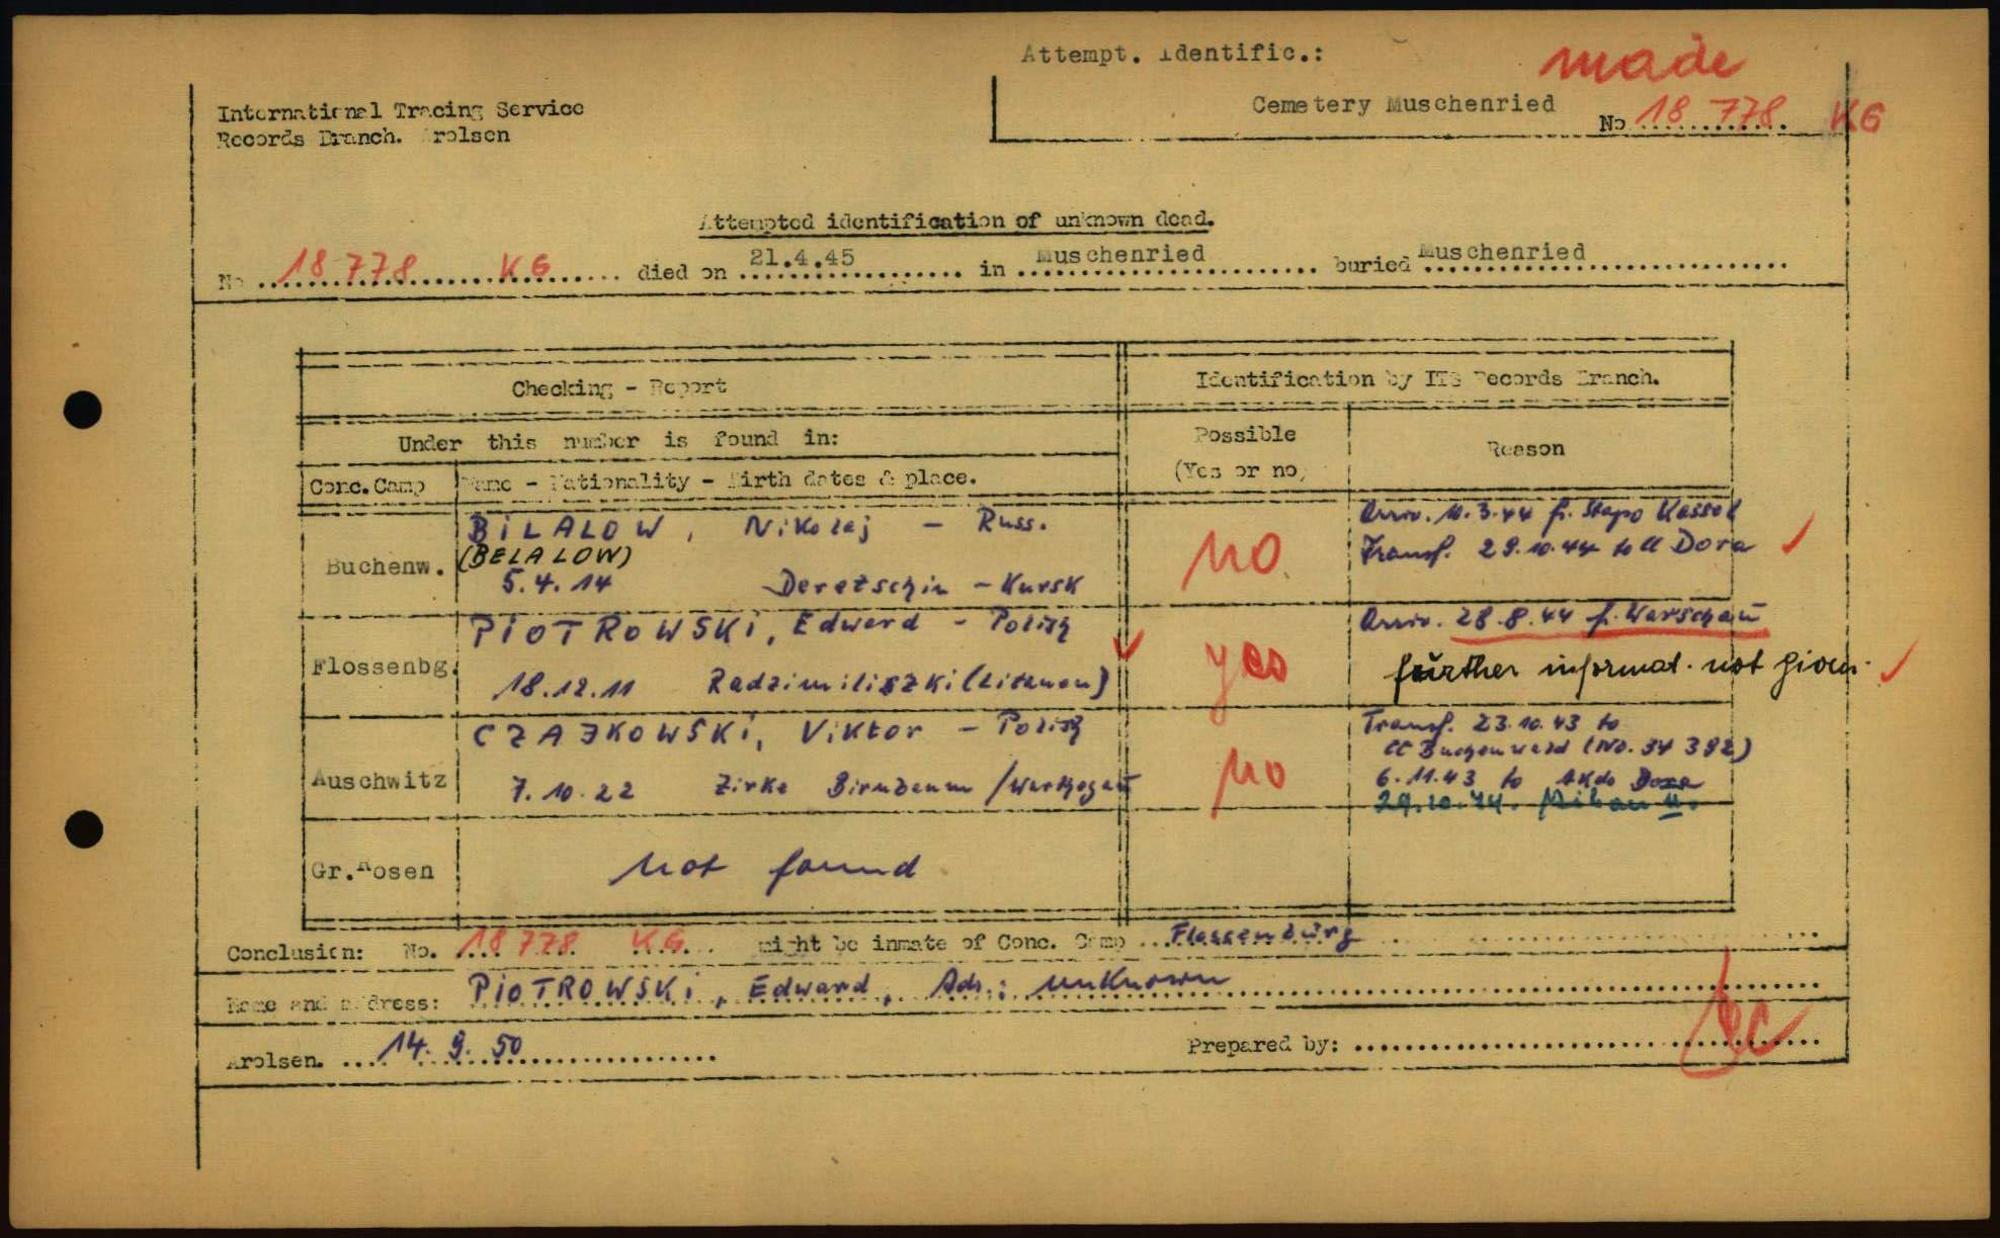 Attempt. Identific.:
made
International Tracing Service
Records Branch. Arolsen
Cemetery Muschenried
No 18 778 KG
Attempted identification of unknown dead.
No 18 778 KG died on 21.4.45 in Muschenried buried Muschenried
Checking - Report
Identification by ITS Records Branch.
Under this number is found in:
Possible
(Yes or no)
Reason
Conc. Camp
Name - Nationality - Birth dates & place.
Buchenw.
BILALOW, Nikolaj - Russ.
(BELALOW)
5.4.14 Deretschin - Kursk
no
Arriv. 11.3.44 f. Stapo Kassel
Transf. 29.10.44 to CC Dora
Flossenbg.
PIOTROWSKI, Edward - Polish
18.12.11 Radzimiliszki (Litauen)
yes
Arriv. 28.8.44 f. Warschau
further informat. not given.
Auschwitz
CZAJKOWSKI, Viktor - Polish
7.10.22 Zirke Birnbaum /Warthegau
no
Transf. 23.10.43 to
CC Buchenwald (No. 34 382)
6.11.43 to AKdo Dora
29.10.44. Mibau II.
Gr. Rosen
not found
Conclusion: No. 18 778 KG might be inmate of Conc. Camp Flossenbürg
Name and address: PIOTROWSKI, Edward, Adr.: unknown
Arolsen. 14. 9. 50
Prepared by: